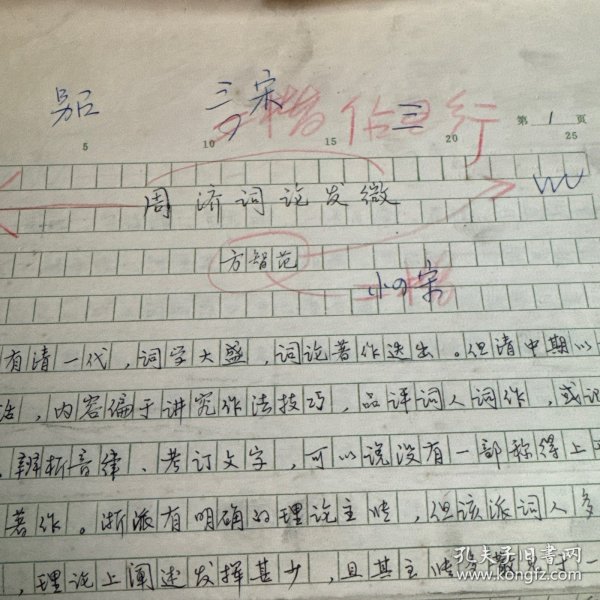 另 三宋
三楷 占三行
第 1 页
5 10 15 20 25
周济词论发微
方智范
小四宋
有清一代，词学大盛，词论著作迭出。但清中期以
，内容偏于讲究作法技巧，品评词人词作，或记
、辨析音律、考订文字，可以说没有一部称得上
著作。浙派有明确的理论主张，但该派词人多
，理论上阐述发挥甚少，且其主张分散见于一
孔夫子旧书网
www.kongfz.com